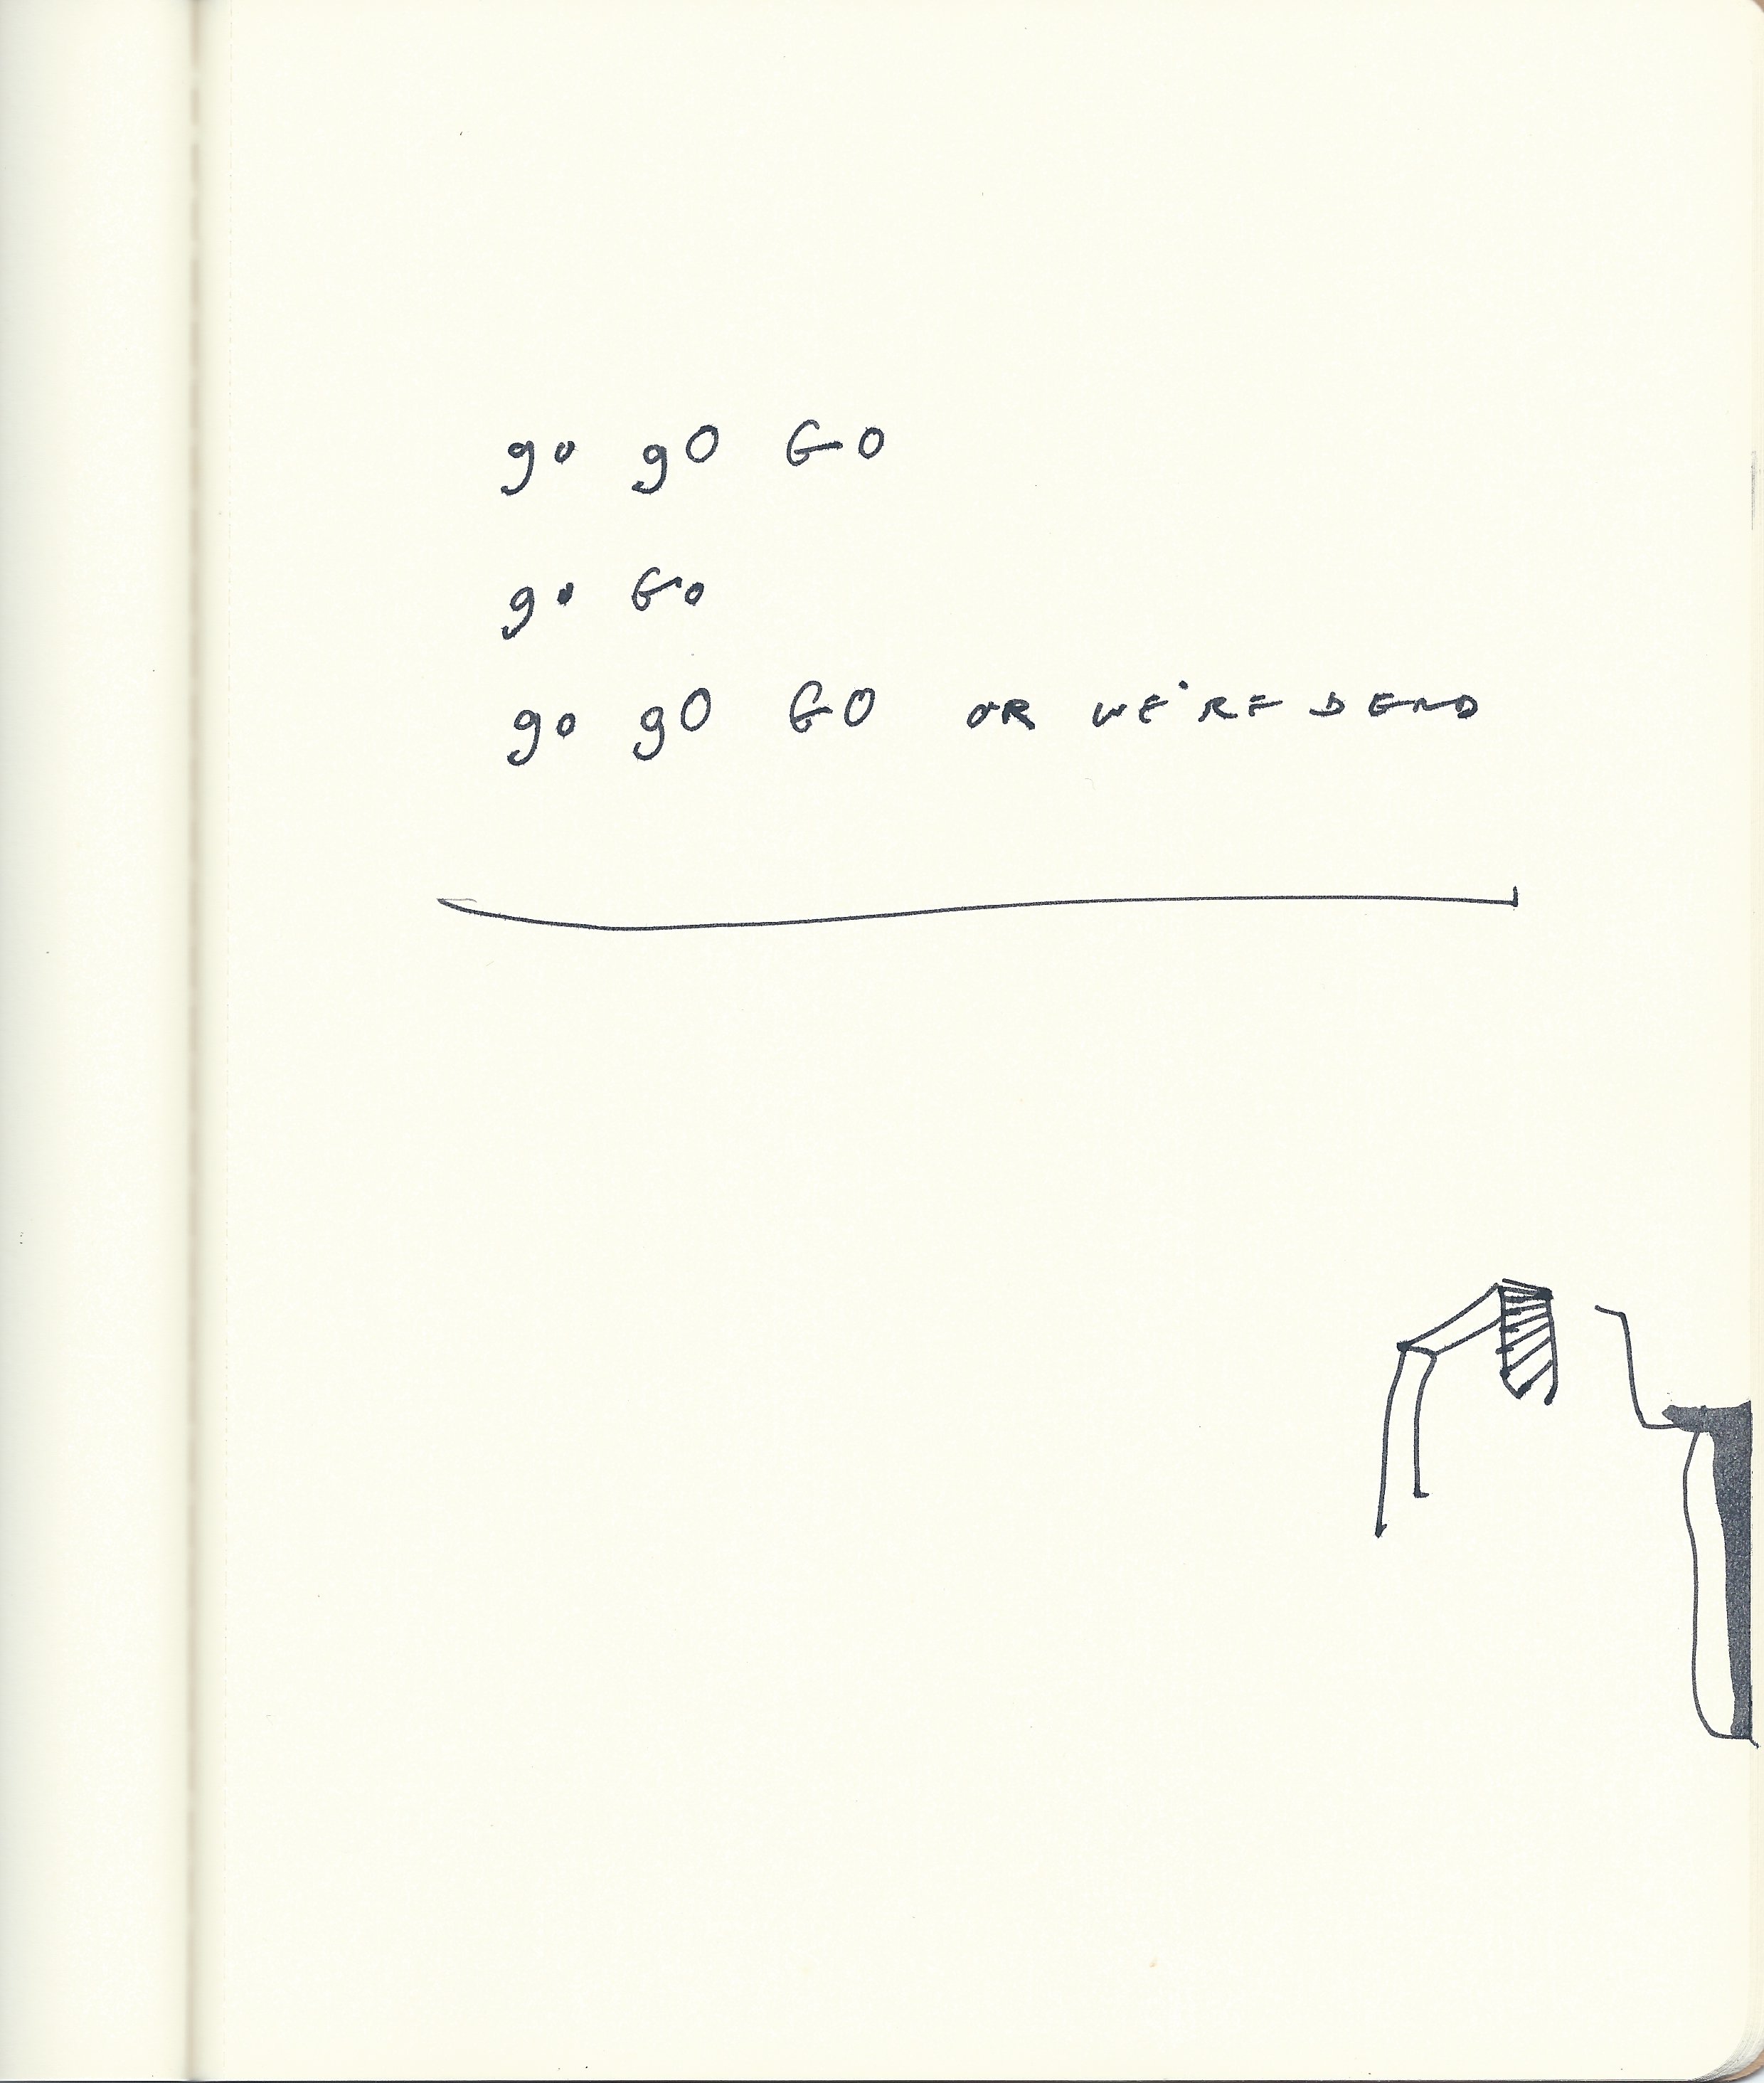 go gO GO
go Go
go gO GO OR WE'RE DEAD